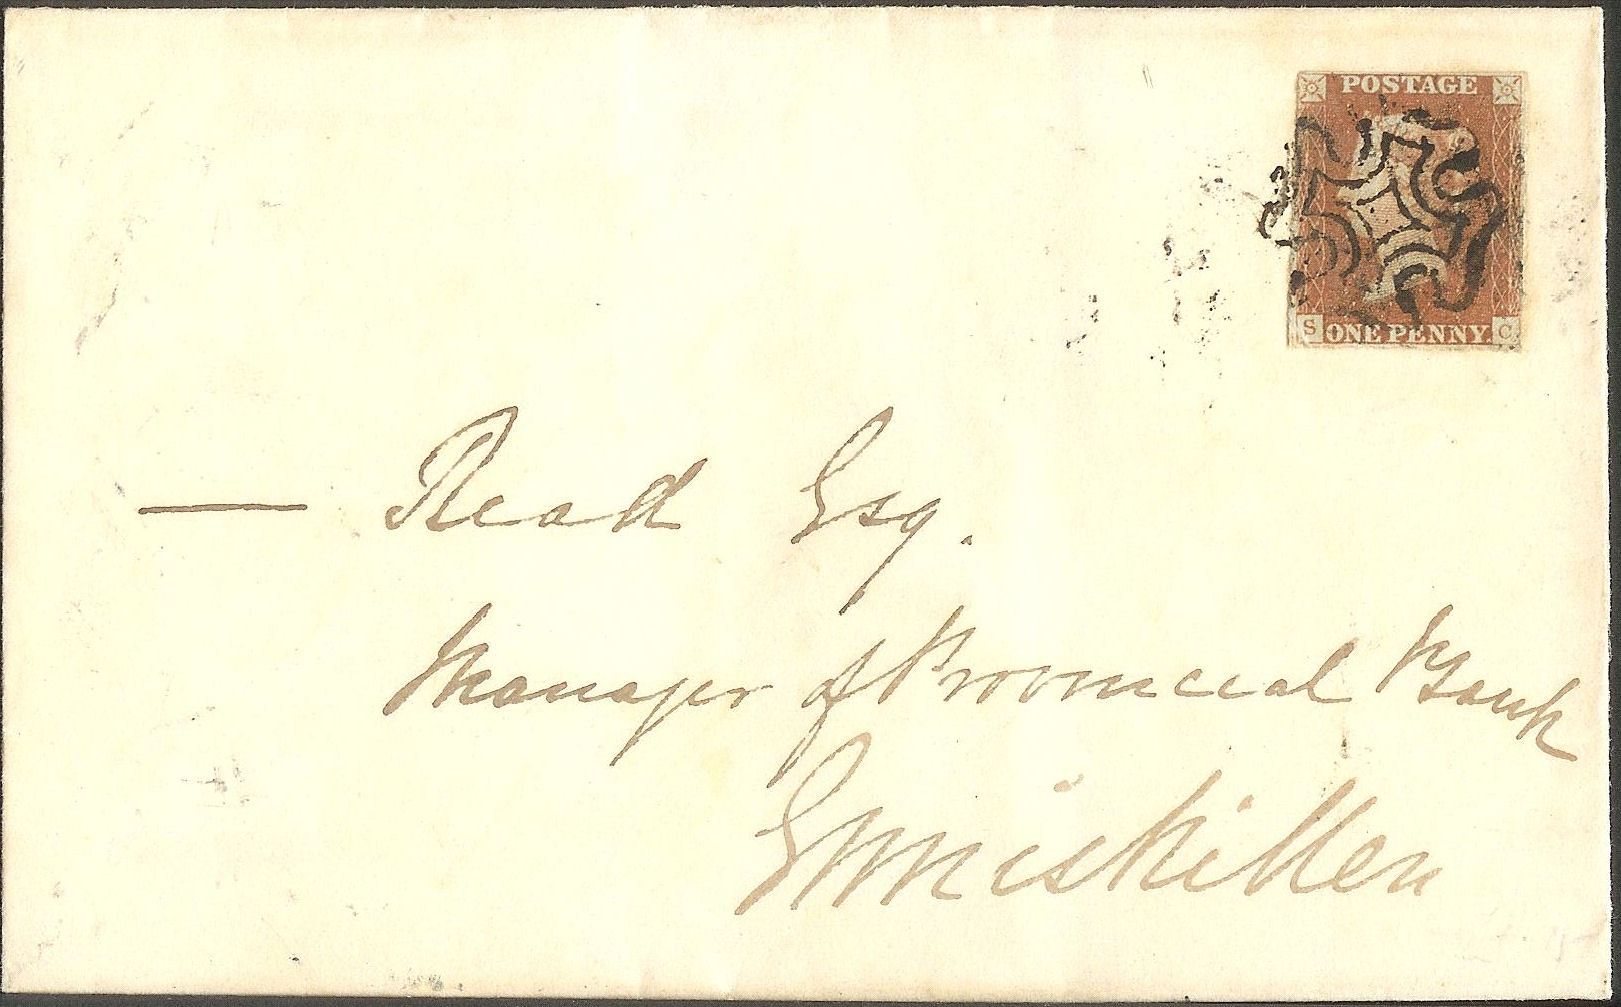 POSTAGE
S ONE PENNY. C
— Read Esq.
Manager of Provincial Bank
Enniskillen